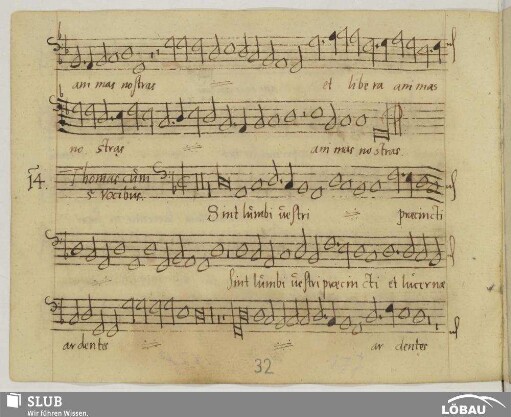 animas nostras et libera animas
nostras animas nostras.
14. Thomas cum
5 vocibus.
Sint lumbi vestri præcincti
Sint lumbi vestri præcincti et lucernæ
ardentes ardentes
32
SLUB
Wir führen Wissen.
LÖBAU